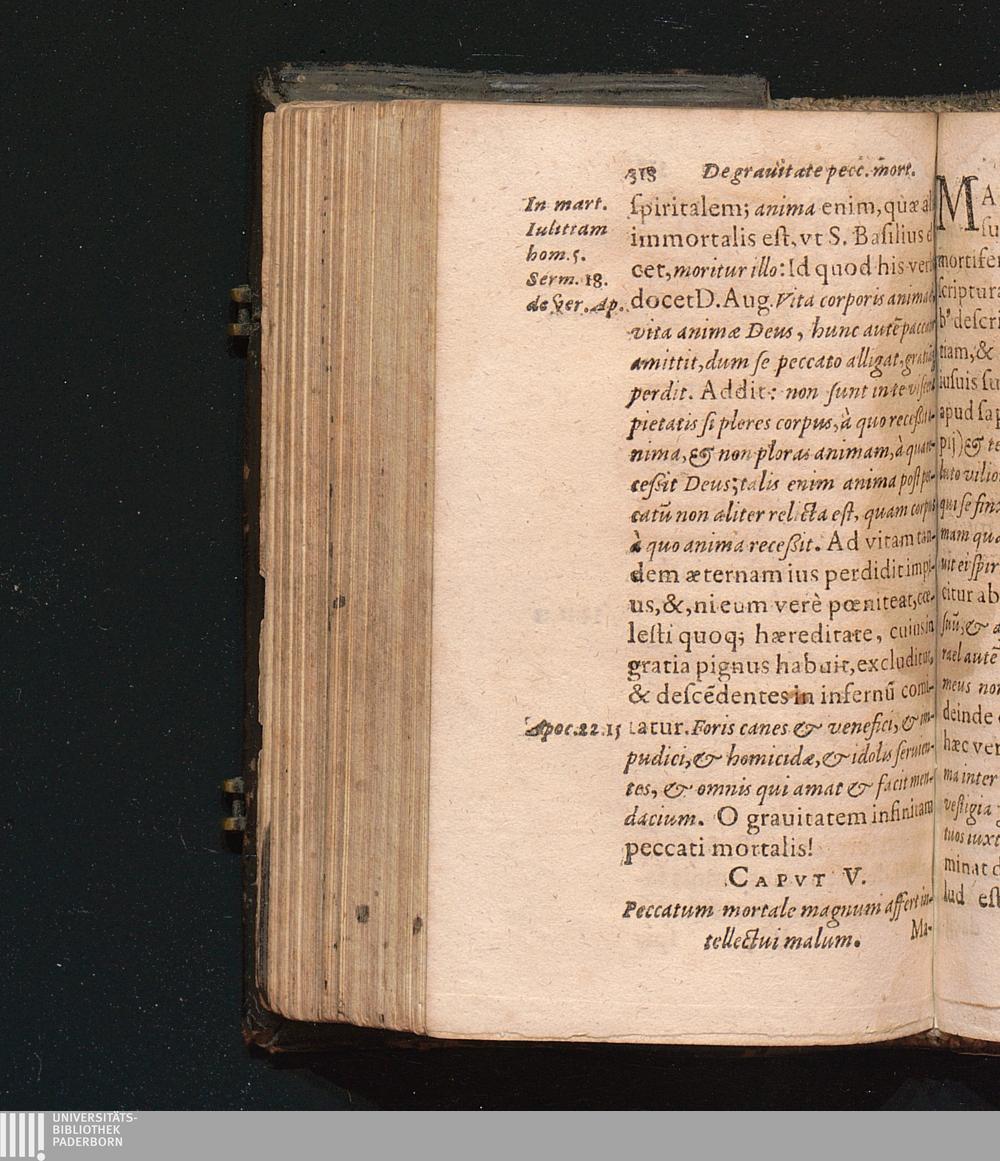 318 De grauitate pecc. mort.
In mart.
Iulittam
hom. 5.
Serm. 18.
de Ver. Ap.
ſpiritalem; anima enim, quæ
immortalis eſt, vt S. Baſilius
cet, moritur illo: Id quod his
docet D. Aug. Vita corporis
vita animæ Deus, hunc autē
amittit, dum ſe peccato alligat,
perdit. Addit: non ſunt in te
pietatis ſi plores corpus, à quo
nima, & non ploras animam, à
ceſsit Deus; talis enim anima poſt
catū non aliter relicta eſt, quam corpus
à quo anima receßit. Ad vitam tan-
dem æternam ius perdidit impi-
us, &, ni eum verè pœniteat, cœ-
leſti quoq; hæreditate, cuius in
gratia pignus habuit, excluditur,
& deſcēdentes in infernū comi-
Apoc. 22. 15
tatur. Foris canes & venefici, & im-
pudici, & homicidæ, & idolis ſeruien-
tes, & omnis qui amat & facit men-
dacium. O grauitatem infinitam
peccati mortalis!
CAPVT V.
Peccatum mortale magnum affert in-
tellectui malum.
Ma-
MA
ſu
mortifer
ſcriptura
deſcri
tiam, &
apud ſap
& te
qui ſe finx
mam qua
uit ei ſpir
citur ab
rael autē
meus non
deinde
hæc ver
ma inter
veſtigia
tuos iuxt
minat
lud eſt
UNIVERSITÄTS-
BIBLIOTHEK
PADERBORN